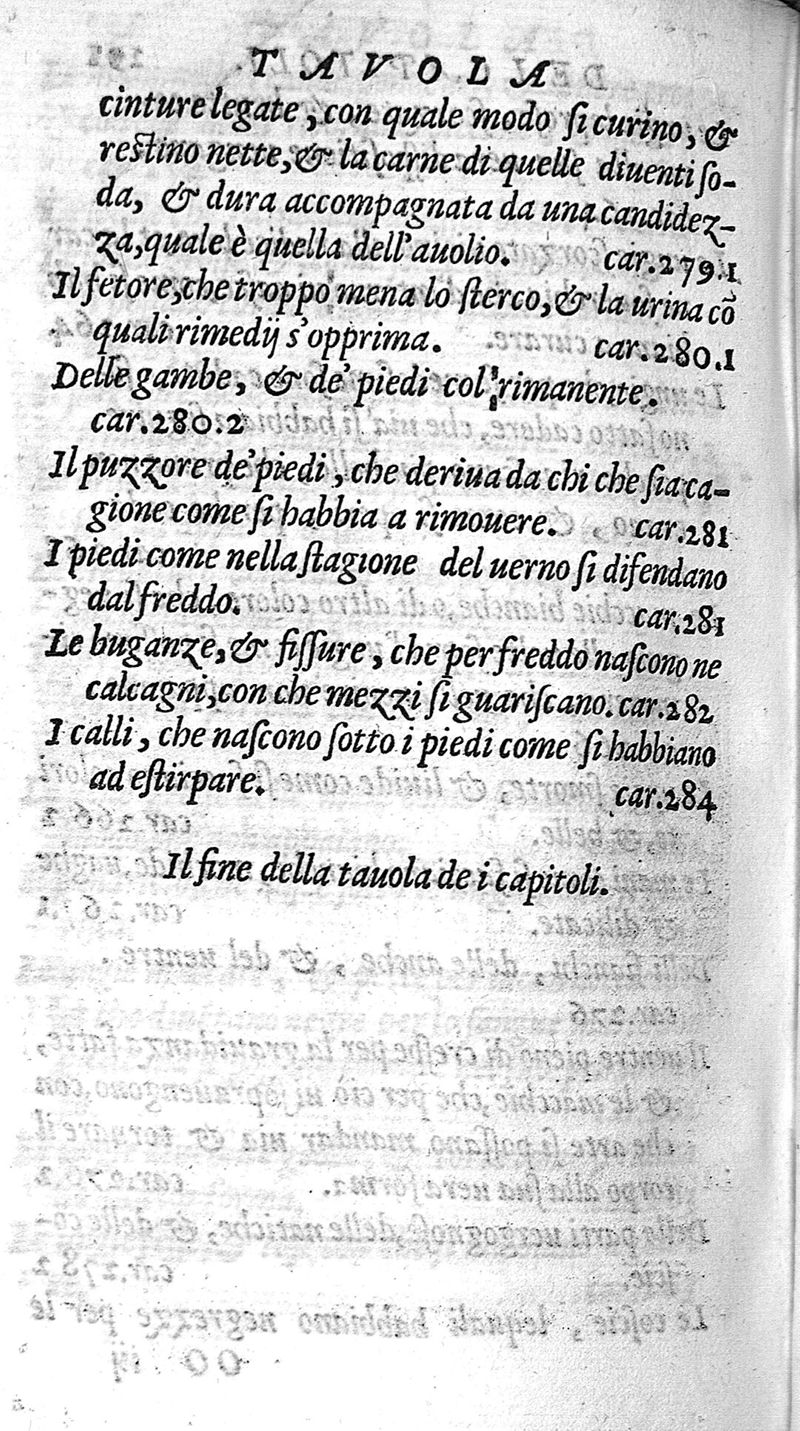 TAVOLA
cinture legate, con quale modo ſi curino, &
reſtino nette, & la carne di quelle diuenti ſo-
da, & dura accompagnata da una candidez-
za, quale è quella dell'auolio. car.279.1
Il fetore, che troppo mena lo ſterco, & la urina cõ
quali rimedij s'opprima. car.280.1
Delle gambe, & de' piedi col rimanente.
car.280.2
Il puzzore de' piedi, che deriua da chi che ſia ca-
gione come ſi habbia a rimouere. car.281
I piedi come nella ſtagione del uerno ſi difendano
dal freddo. car.281
Le buganze, & fiſſure, che per freddo naſcono ne
calcagni, con che mezzi ſi guariſcano. car.282
I calli, che naſcono ſotto i piedi come ſi habbiano
ad eſtirpare. car.284
Il fine della tauola de i capitoli.